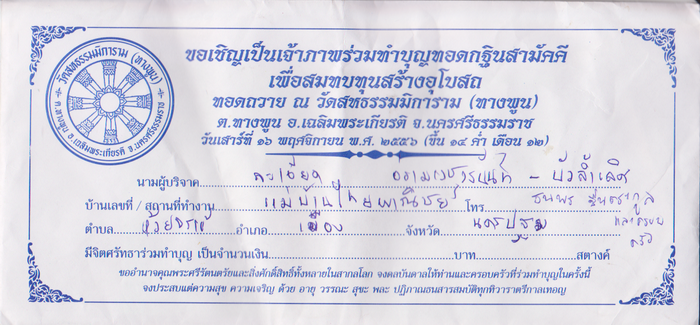 วัดสหธรรมมิการาม (ทางพูน)
ต.ทางพูน อ.เฉลิมพระเกียรติ จ.นครศรีธรรมราช
ขอเชิญเป็นเจ้าภาพร่วมทำบุญทอดกฐินสามัคคี
เพื่อสมทบทุนสร้างอุโบสถ
ทอดถวาย ณ วัดสหธรรมมิการาม (ทางพูน)
ต.ทางพูน อ.เฉลิมพระเกียรติ จ.นครศรีธรรมราช
วันเสาร์ที่ ๑๖ พฤศจิกายน พ.ศ. ๒๕๕๖ (ขึ้น ๑๔ ค่ำ เดือน ๑๒)
นามผู้บริจาค
บ้านเลขที่ / สถานที่ทำงาน แม่บ้านไทยพาณิชย์ โทร.
และครอบครัว
ตำบล ห้วยจรเข้ อำเภอ เมือง จังหวัด นครปฐม
มีจิตศรัทธาร่วมทำบุญ เป็นจำนวนเงิน บาท สตางค์
ขออำนาจคุณพระศรีรัตนตรัยและสิ่งศักดิ์สิทธิ์ทั้งหลายในสากลโลก จงดลบันดาลให้ท่านและครอบครัวที่ร่วมทำบุญในครั้งนี้
จงประสบแต่ความสุข ความเจริญ ด้วย อายุ วรรณะ สุขะ พละ ปฏิภาณธนสารสมบัติทุกทิวาราตรีกาลเทอญ